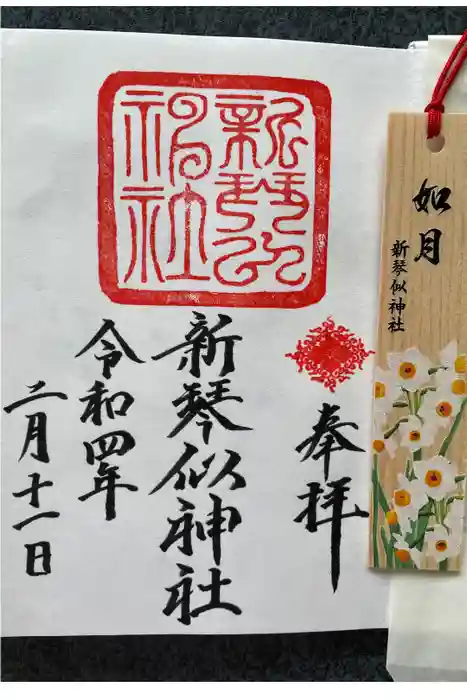 奉拝
新琴似神社
令和四年
二月十一日
新琴似
神社
如月
新琴似神社